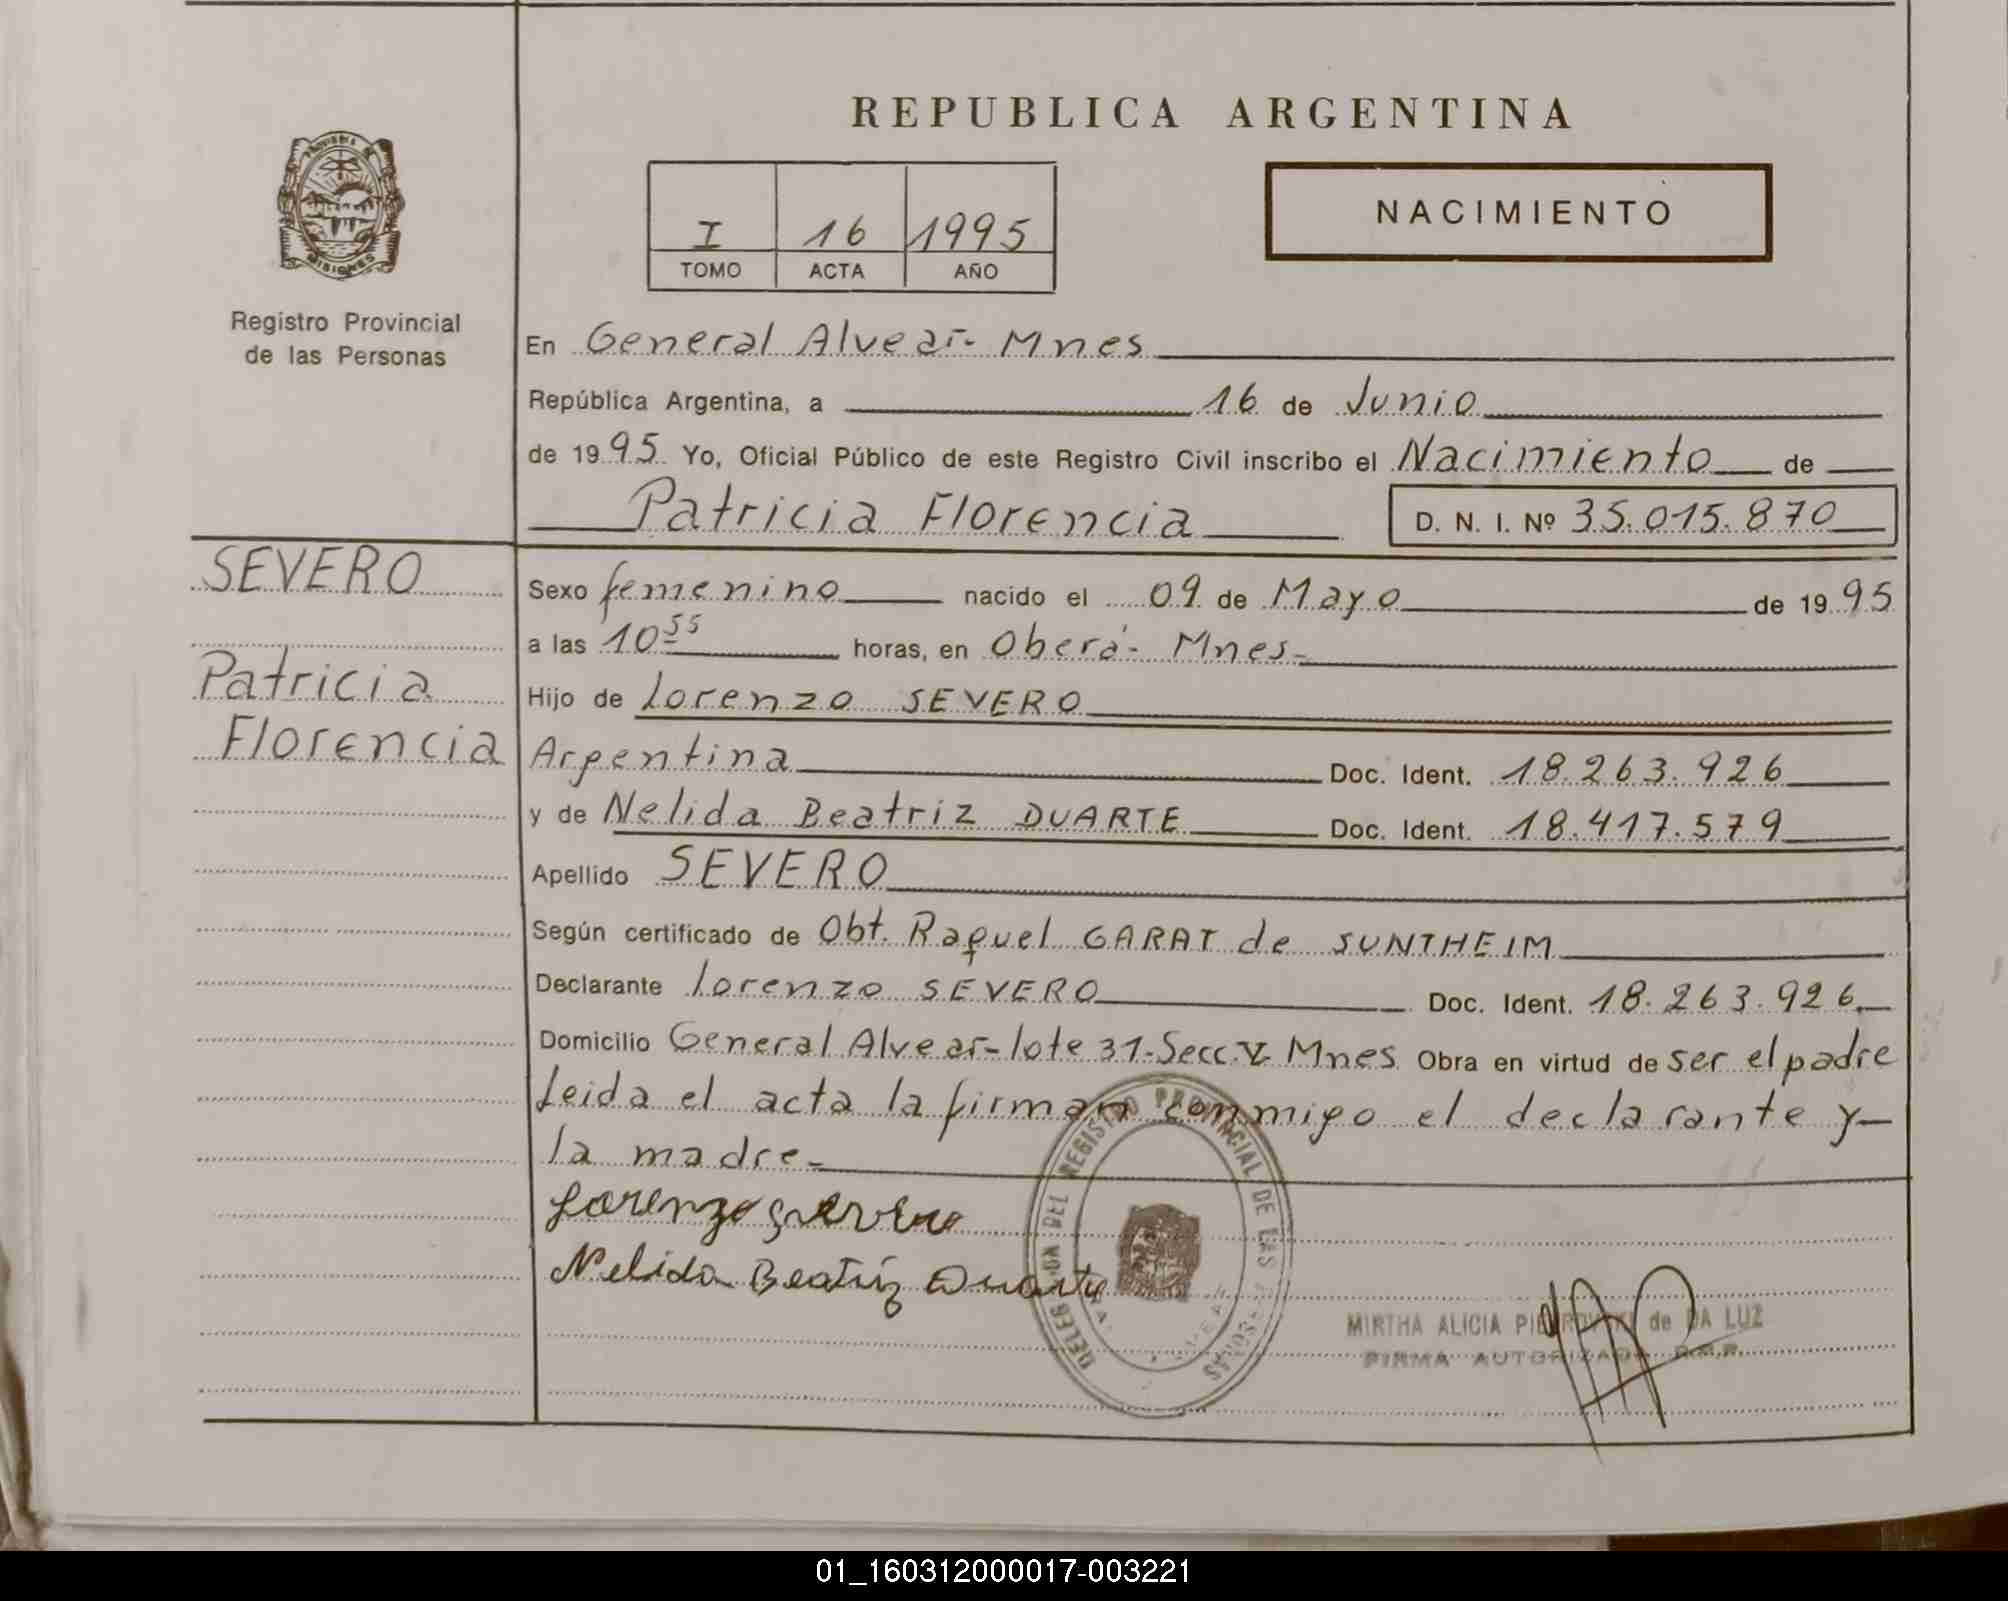 REPUBLICA ARGENTINA
PROVINCIA DE
MISIONES
Registro Provincial
de las Personas
I 16 1995
TOMO ACTA AÑO
NACIMIENTO
En General Alvear- Mnes
República Argentina, a 16 de Junio
de 1995 Yo, Oficial Público de este Registro Civil inscribo el Nacimiento de
Patricia Florencia D. N. I. Nº 35.015.870
SEVERO
Patricia
Florencia
Sexo femenino nacido el 09 de Mayo de 1995
a las 10 55 horas, en Oberá- Mnes-
Hijo de Lorenzo SEVERO
Argentina Doc. Ident. 18.263.926
y de Nelida Beatriz DUARTE Doc. Ident. 18.417.579
Apellido SEVERO
Según certificado de Obt. Raquel GARAT de SUNTHEIM
Declarante Lorenzo SEVERO Doc. Ident. 18.263.926
Domicilio General Alvear-lote 31-Secc. V- Mnes Obra en virtud de ser el padre
Leida el acta la firman conmigo el declarante y
la madre-
Lorenzo Severo
Nelida Beatriz Duarte
REGISTRO PROVINCIAL DE LAS
MIRTHA ALICIA de DA LUZ
FIRMA AUTORIZADA R.P.P.
01_160312000017-003221